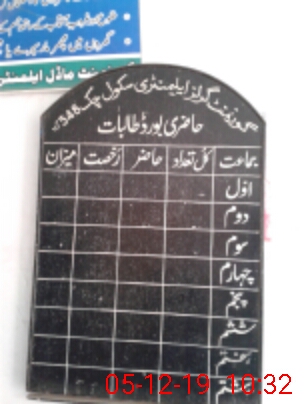 گورنمنٹ گرلز ایلیمنٹری سکول چک 548
حاضری بورڈ طالبات
جماعت کل تعداد حاضر رخصت میزان
اوّل
دوم
سوم
چہارم
پنجم
ششم
ہفتم
ہشتم
05-12-19 10:32